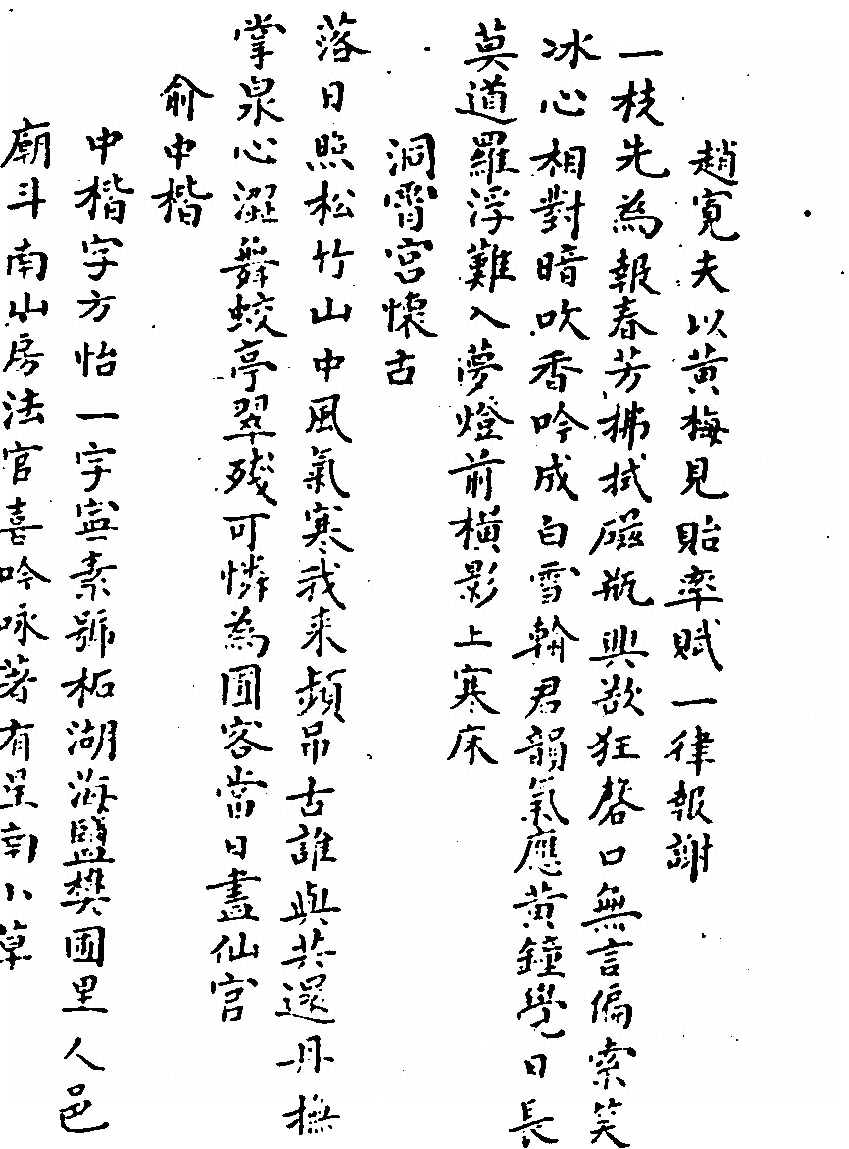 趙寛夫以黄梅見貽率賦一律報謝
一枝先為報春芳拂拭磁瓶興欲狂磬口無言偏索笑
冰心相對暗吹香吟成白雪輸君韻氣應黄鐘覺日長
莫道羅浮難入夢燈前横影上寒床
洞霄宮懷古
落日照松竹山中風氣寒我来頻吊古誰與共還丹撫
掌泉心澀舞蛟亭翠殘可憐為圃客當日盡仙官
俞中楷
中楷字方怡一字寍素號柘湖海鹽樊圃里人邑
廟斗南山房法官喜吟咏著有星南小草